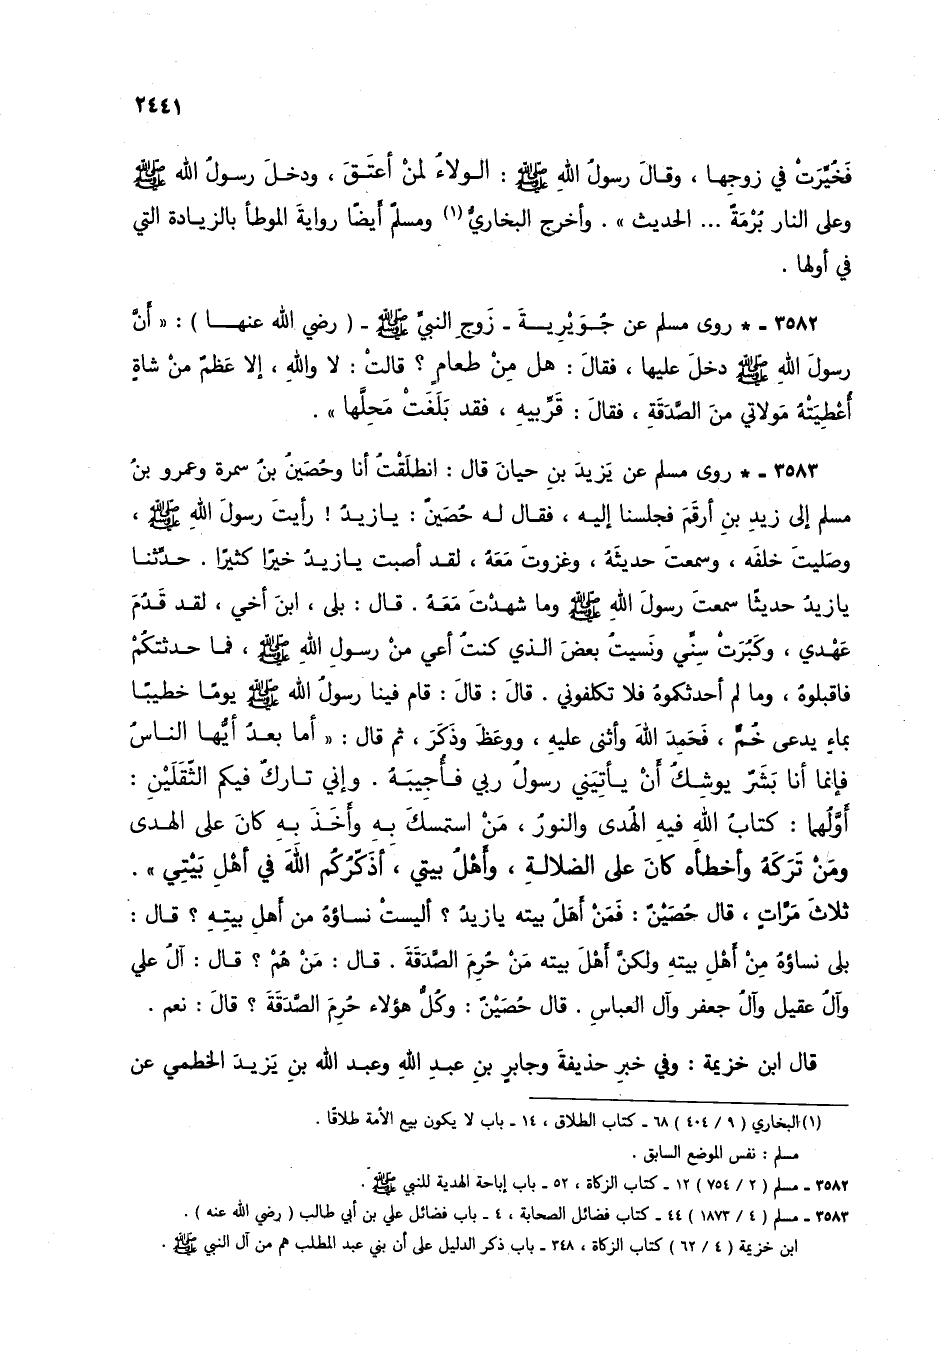 ٢٤٤١
فَخُيِّرَتْ في زوجها ، وقالَ رسولُ اللهِ ﷺ : الولاءُ لمنْ أعتَقَ ، ودخلَ رسولُ الله ﷺ
وعلى النار بُرْمَةٌ ... الحديث » . وأخرج البخاريُّ (١) ومسلمٌ أيضًا روايةَ الموطأ بالزيادة التي
في أولها .
٣٥٨٢ - * روى مسلم عن جُوَيْرِيةَ - زَوجِ النبيِّ ﷺ - ( رضي الله عنها ) : « أنَّ
رسولَ اللهِ ﷺ دخلَ عليها ، فقالَ : هل مِنْ طعامٍ ؟ قالتْ : لا واللهِ ، إلا عَظمٌ منْ شاةٍ
أُعْطِيَتْهُ مَولاتي منَ الصَّدَقَةِ ، فقالَ : قَرِّبيهِ ، فقد بَلَغَتْ مَحِلَّها » .
٣٥٨٣ - * روى مسلم عن يَزيدَ بنِ حيانَ قال : انطلَقْتُ أنا وحُصَينُ بنُ سمرة وعمرو بنُ
مسلم إلى زيدِ بنِ أرقَمَ فجلسنا إليه ، فقال له حُصَينٌ : يازيدُ ! رأيتَ رسولَ اللهِ ﷺ ،
وصَليتَ خلفَه ، وسمعتَ حديثَهُ ، وغزوتَ مَعَهُ ، لقد أصبت يازيدُ خيرًا كثيرًا . حدِّثنا
يازيدُ حديثًا سمعتَ رسولَ اللهِ ﷺ وما شهدْتَ مَعَهُ . قال : بلى ، ابنَ أخي ، لقد قَدُمَ
عَهْدي ، وكَبُرَتْ سِنِّي ونَسيتُ بعضَ الذي كنتُ أعي منْ رسولِ اللهِ ﷺ ، فما حدثتكمْ
فاقبلوهُ ، وما لم أحدثكموهُ فلا تكلفوني . قالَ : قالَ : قام فينا رسولُ الله ﷺ يومًا خطيبًا
بماءٍ يدعى خُمٌّ ، فَحَمِدَ اللهَ وأثنى عليهِ ، ووعَظَ وذَكَرَ ، ثم قال : « أما بعدُ أيُّها الناسُ
فإنما أنا بَشَرٌ يوشِكُ أنْ يأتيَني رسولُ ربي فأُجيبَهُ . وإني تاركٌ فيكم الثّقَلَيْنِ :
أوَّلُها : كتابُ اللهِ فيهِ الهُدى والنورُ ، مَنْ استمسكَ بهِ وأَخَذَ بهِ كانَ على الهدى
ومَنْ تَرَكَهُ وأخطأه كانَ على الضلالةِ ، وأَهْلُ بيتي ، أذكّرُكُم اللهَ في أهْلِ بَيْتِي » .
ثلاثَ مَرَّاتٍ ، قال حُصَيْنٌ : فَمَنْ أهَلُ بيته يازيدُ ؟ أليستْ نساؤهُ من أهلِ بيتِهِ ؟ قال :
بلى نساؤهُ مِنْ أهْلِ بيتهِ ولكنَّ أهْلَ بيته مَنْ حُرِمَ الصَّدَقَةَ . قال : مَنْ هُمْ ؟ قال : آلُ علي
وآلُ عقيل وآلُ جعفر وآل العباسِ . قال حُصَيْنٌ : وكُلُّ هؤلاء حُرِمَ الصَّدَقَةَ ؟ قالَ : نعم .
قال ابن خزيمة : وفي خبرِ حذيفةَ وجابرِ بنِ عبدِ اللهِ وعبد الله بنِ يَزيدَ الخطمي عن
(١) البخاري ( ٩ / ٤٠٤ ) ٦٨ - كتاب الطلاق ، ١٤ - باب لا يكون بيع الأمة طلاقًا .
مسلم : نفس الموضع السابق .
٣٥٨٢ - مسلم ( ٢ / ٧٥٤ ) ١٢ - كتاب الزكاة ، ٥٢ - باب إباحة الهدية للنبي ﷺ .
٣٥٨٣ - مسلم ( ٤ / ١٨٧٣ ) ٤٤ - كتاب فضائل الصحابة ، ٤ - باب فضائل علي بن أبي طالب ( رضي الله عنه ) .
ابن خزيمة ( ٤ / ٦٢ ) كتاب الزكاة ، ٣٤٨ - باب ذكر الدليل على أن بني عبد المطلب هم من آل النبي ﷺ .